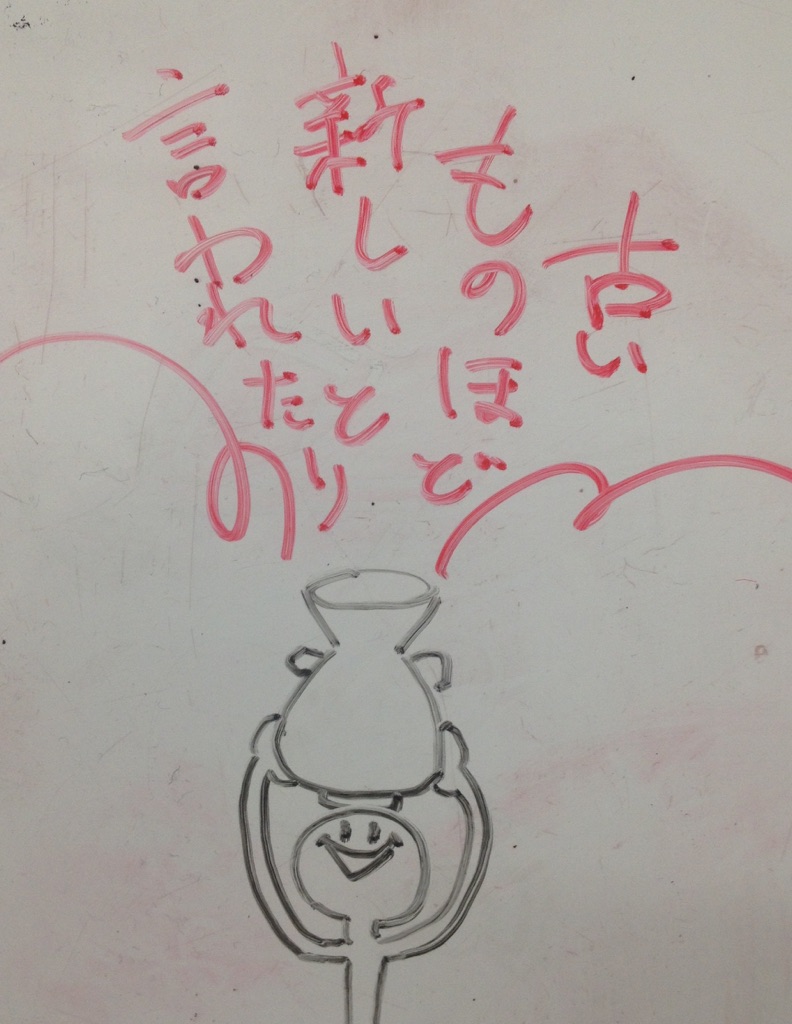 古い
ものほど
新しいとり
言われたり